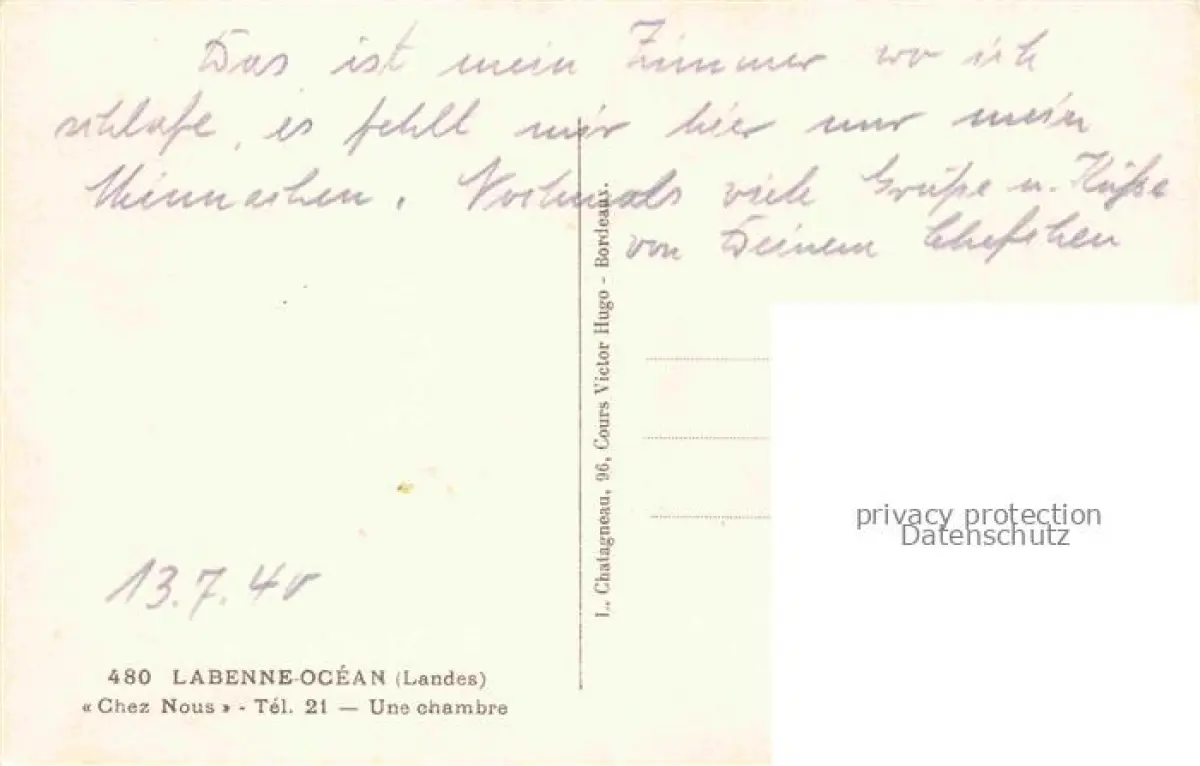 Das ist mein Zimmer wo ich
schlafe, es fehlt mir hier nur mein
Minnachen. Nochmals viele Grüße u. Küße
von Deinem Chefchen
L. Chatagneau, 96, Cours Victor Hugo - Bordeaux.
privacy protection
Datenschutz
13.7.40
480 LABENNE-OCÉAN (Landes)
« Chez Nous » - Tél. 21 — Une chambre